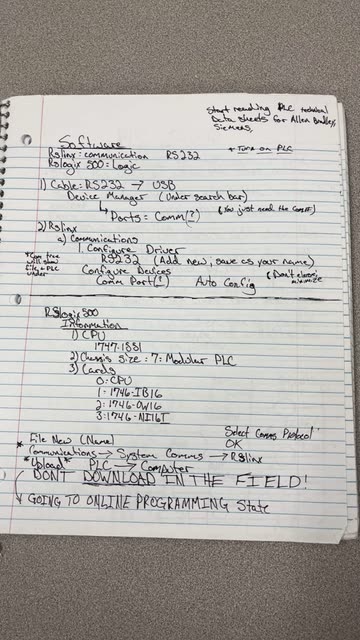 Start reading PLC technical
Data sheets for Allen Bradley,
Siemens,
Software
Rslinx: communication RS232
Rslogix 500 = Logic
* Turn on PLC
1) Cable: RS232 → USB
Device Manager (under search bar)
↳ Ports = Comm(?) (You just need the Comm#)
2) Rslinx
a) Communications
1. Configure Driver
RS232 (Add new, save as your name)
* Comm tree
will show
file + PLC
under
Configure Devices
Comm Port(?) Auto Config
(Don't close,
minimize
RSlogix 500
Information
1) CPU
1747-L551
2) Chassis size: 7: Modular PLC
3) Cards
0: CPU
1-1746-IB16
2: 1746-OW16
3: 1746-NI16I
File New (Name)
Select Comms Protocol
OK
* Communications → System Comms → Rslinx
*Upload* PLC → Computer
DONT DOWNLOAD IN THE FIELD!
GOING TO ONLINE PROGRAMMING State